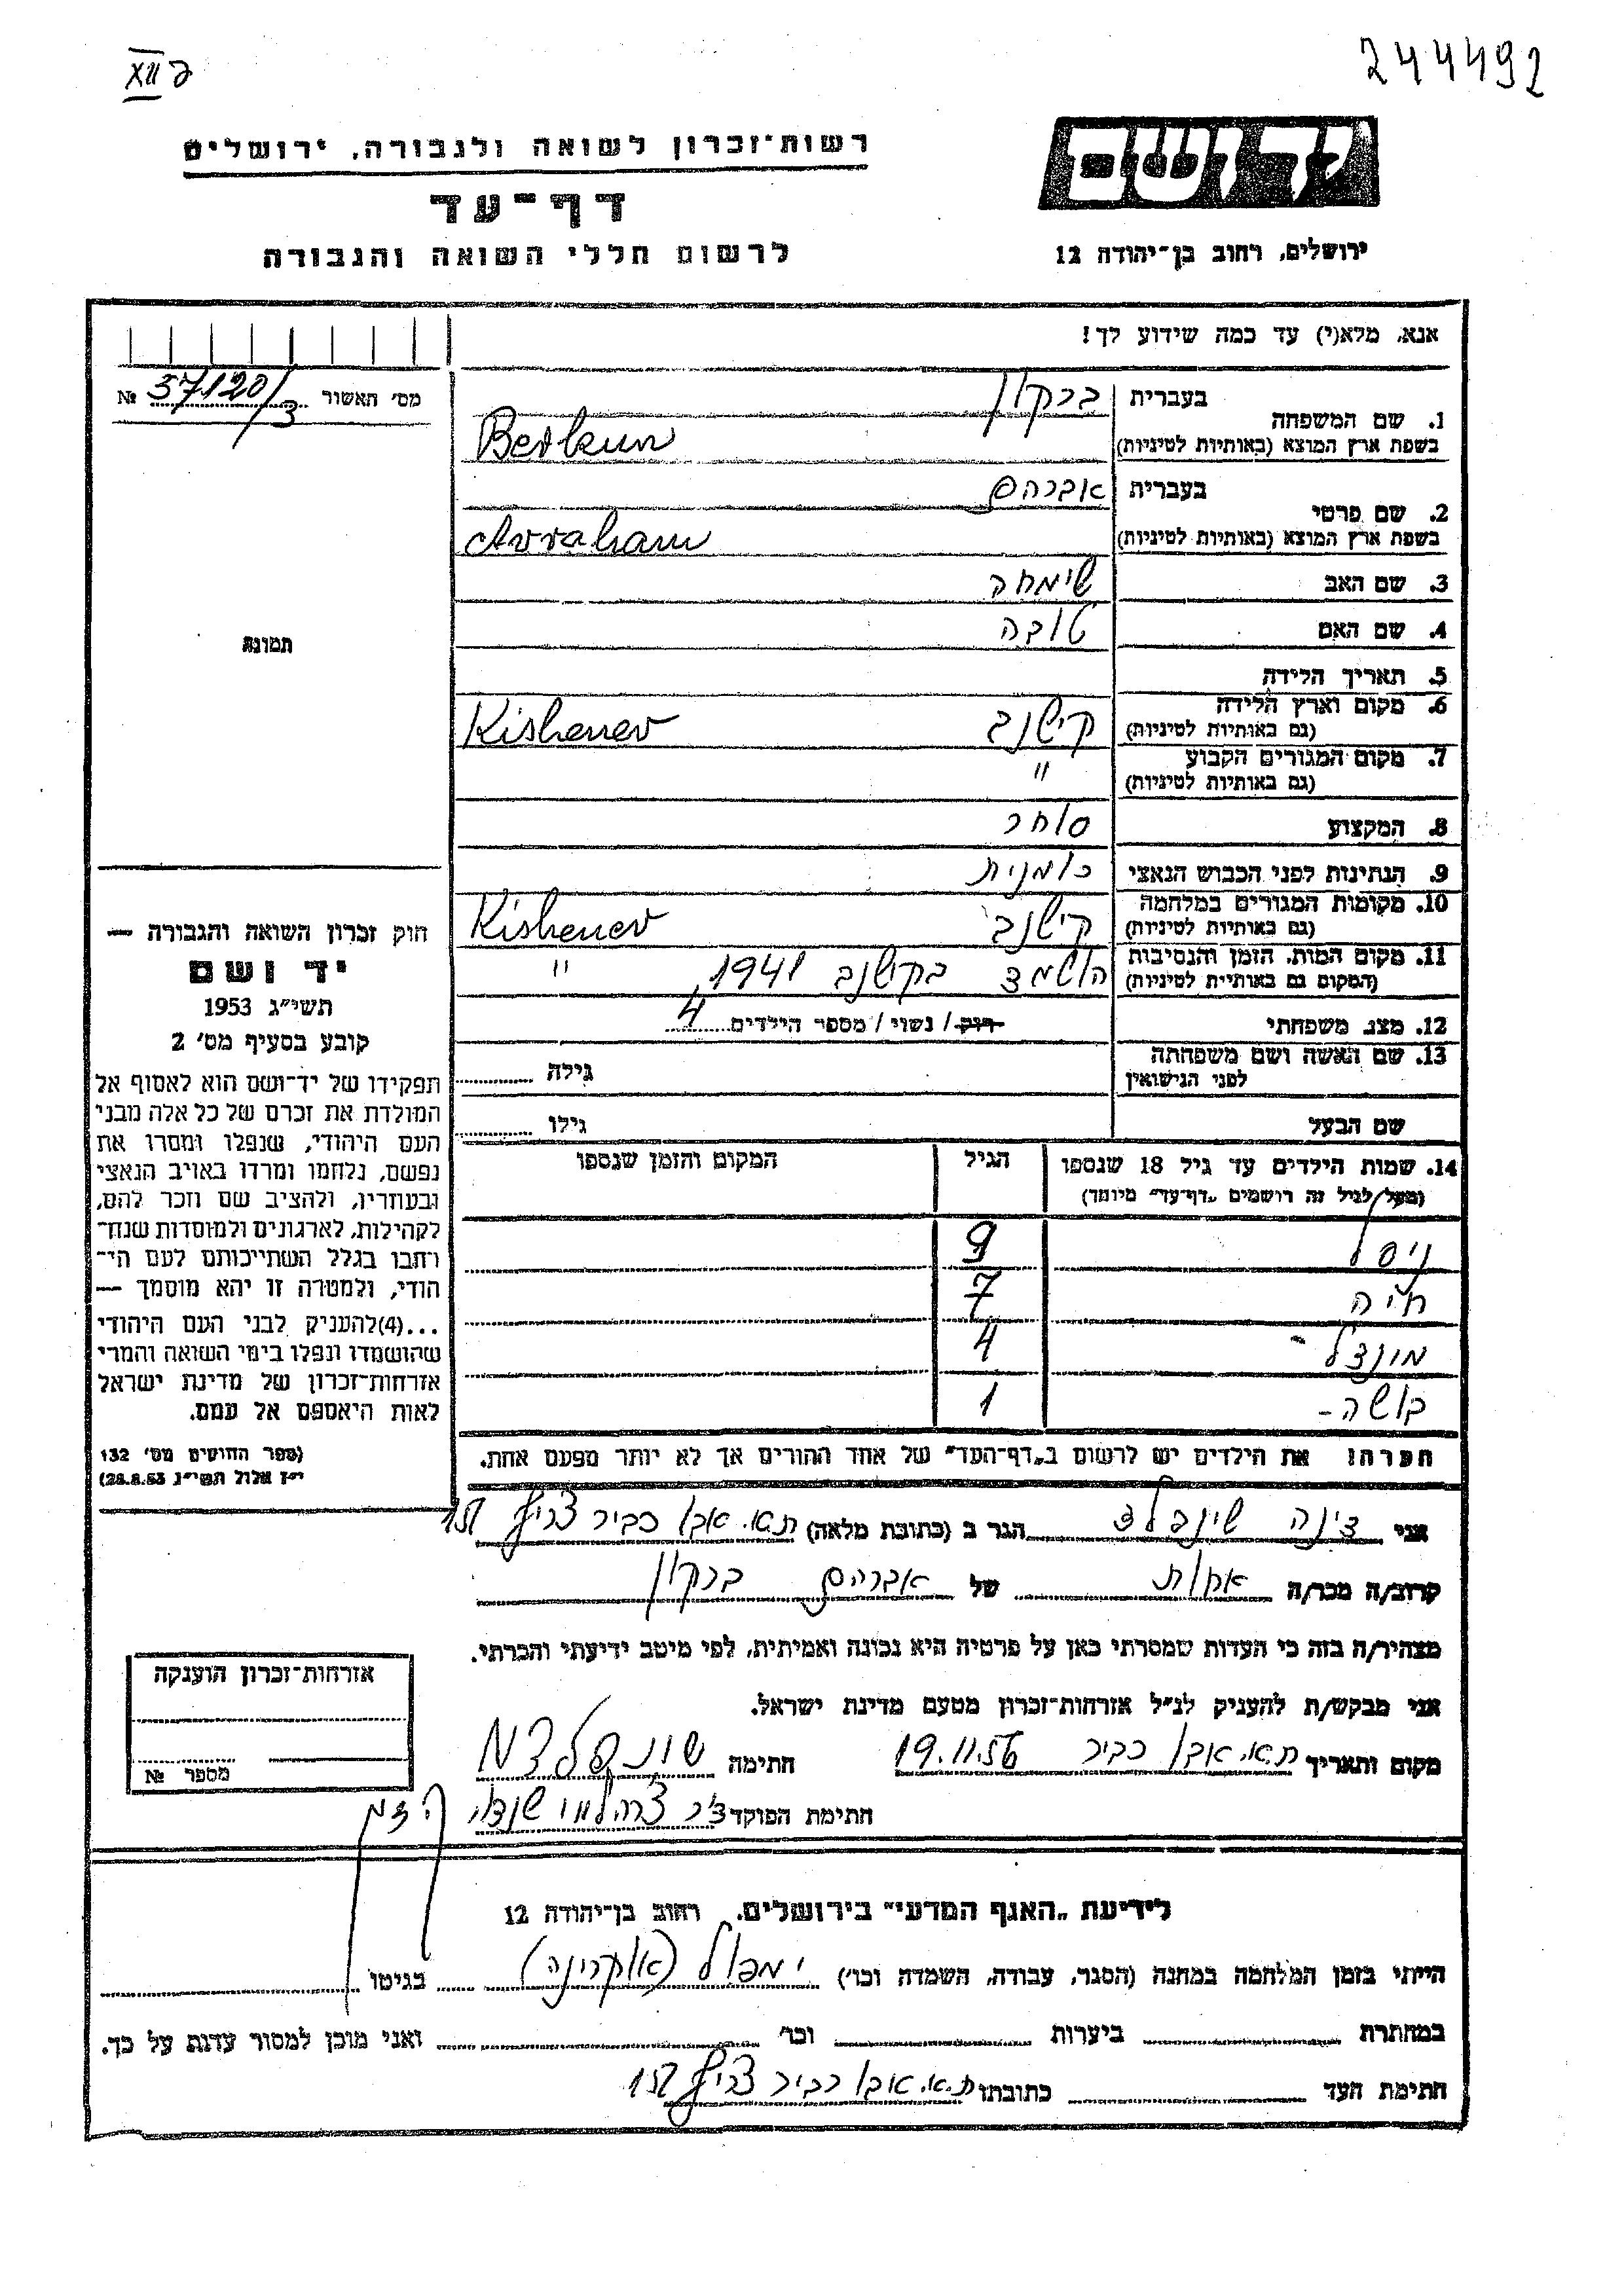 XII ק
244492
יד ושם
ירושלים, רחוב בן־יהודה 12
רשות־זכרון לשואה ולגבורה, ירושלים
דף־עד
לרשום חללי השואה והגבורה
אנא, מלא(י) עד כמה שידוע לך!
מס' האשור № 57120/3
1. שם המשפחה בעברית ברקון
בשפת ארץ המוצא (באותיות לטיניות) Berkun
2. שם פרטי בעברית אברהם
בשפת ארץ המוצא (באותיות לטיניות) Avraham
3. שם האב שימחה
4. שם האם טובה
5. תאריך הלידה
6. מקום וארץ הלידה קישנב Kishenev
(גם באותיות לטיניות)
7. מקום המגורים הקבוע "
(גם באותיות לטיניות)
8. המקצוע סוחר
9. הנתינות לפני הכבוש הנאצי רומנית
10. מקומות המגורים במלחמה קישנב Kishenev
(גם באותיות לטיניות)
11. מקום המות, הזמן והנסיבות הושמד בקישנב 1941 "
(המקום גם באותיות לטיניות)
12. מצב משפחתי רווק / נשוי / מספר הילדים 4
13. שם האשה ושם משפחתה גילה
לפני הנישואין
שם הבעל גילו
14. שמות הילדים עד גיל 18 שנספו הגיל המקום והזמן שנספו
(מעל לגיל זה רושמים "דף־עד" מיוחד)
ניסל 9
חיה 7
מונדל - 4
בושה - 1
הערה! את הילדים יש לרשום ב"דף־העד" של אחד ההורים אך לא יותר מפעם אחת.
תמונה
חוק זכרון השואה והגבורה —
יד ושם
תשי"ג 1953
קובע בסעיף מס' 2
תפקידו של יד־ושם הוא לאסוף אל
המולדת את זכרם של כל אלה מבני
העם היהודי, שנפלו ומסרו את
נפשם, נלחמו ומרדו באויב הנאצי
ובעוזריו, ולהציב שם וזכר להם,
לקהילות, לארגונים ולמוסדות שנח־
רבו בגלל השתייכותם לעם הי־
הודי, ולמטרה זו יהא מוסמך —
...(4)להעניק לבני העם היהודי
שהושמדו ונפלו בימי השואה והמרי
אזרחות־זכרון של מדינת ישראל
לאות היאספם אל עמם.
(ספר החוקים מס' 132
י"ז אלול תשי"ג 28.8.53)
אני דינה שינפלד הגר ב (כתובת מלאה) ת.א. אבו כביר צריף 151
קרוב/ה מכר/ה אחות של אברהם ברקון
מצהיר/ה בזה כי העדות שמסרתי כאן על פרטיה היא נכונה ואמיתית, לפי מיטב ידיעתי והכרתי.
אני מבקש/ת להעניק לנ"ל אזרחות־זכרון מטעם מדינת ישראל.
מקום ותאריך ת.א. אבו כביר 19.11.56 חתימה
חתימת הפוקד
אזרחות־זכרון הוענקה
מספר №
לידיעת "האגף המדעי" בירושלים, רחוב בן־יהודה 12
הייתי בזמן המלחמה במחנה (הסגר, עבודה, השמדה וכו') ימפול (אוקרינה) בגיטו
במחתרת ביערות וכו' ואני מוכן למסור עדות על כך.
חתימת העד כתובתו ת.א. אבו כביר צריף 151